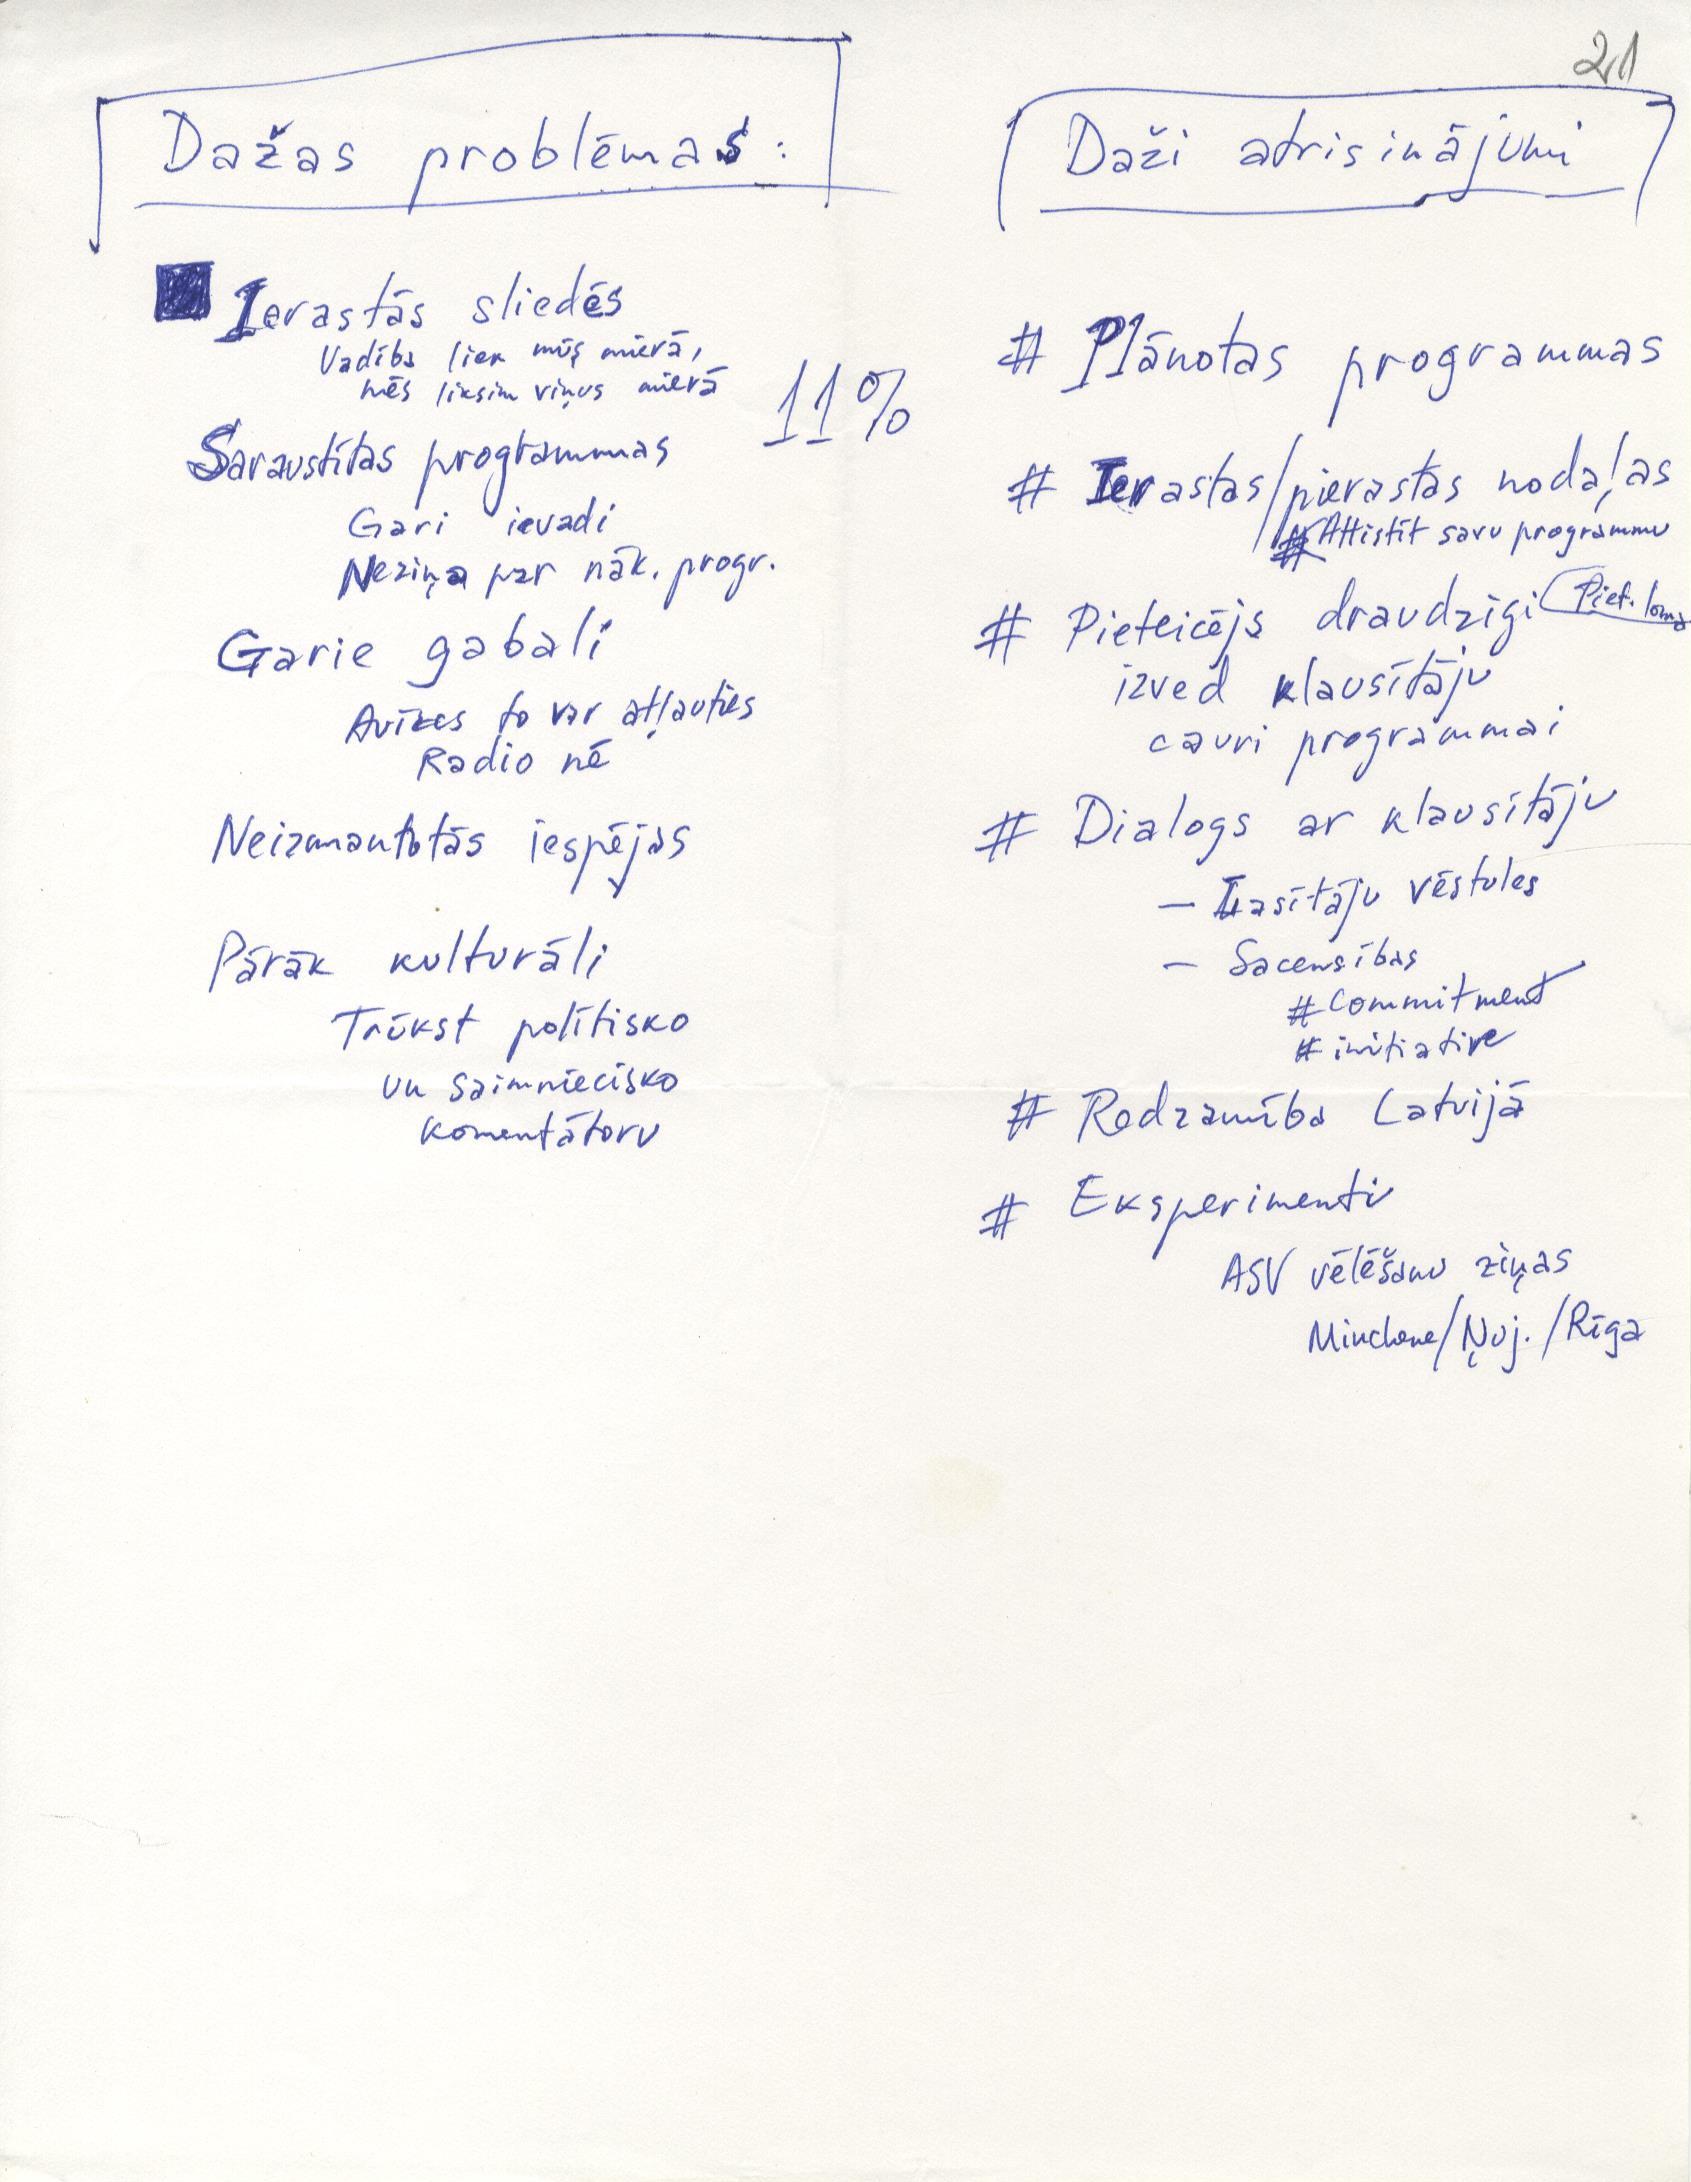 21
Dažas problēmas:
Ierastās sliedēs
Vadība liek mūs mierā,
mēs liksim viņus mierā
11%
Saraustītas programmas
Gari ievadi
Neziņa par nāk. progr.
Garie gabali
Avīzes to var atļauties
Radio nē
Neizmantotās iespējas
Pārāk kulturāli
Trūkst polītisko
un saimniecisko
komentātoru
Daži atrisinājumi
# Plānotas programmas
# Ierastas/pierastas nodaļas
# Attīstīt savu programmu
# Pieteicējs draudzīgi Piet. loma
izved klausītāju
cauri programmai
# Dialogs ar klausītāju
- Lasītāju vēstules
- Sacensības
# Commitment
# initiative
# Redzamība Latvijā
# Eksperimenti
ASV vēlēšanu ziņas
Minchene/Ņuj./Rīga